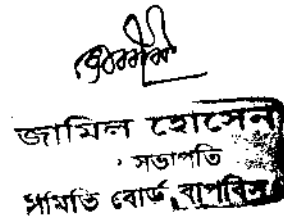 জামিল হোসেন
সভাপতি
সমিতি বোর্ড, বাপবিস